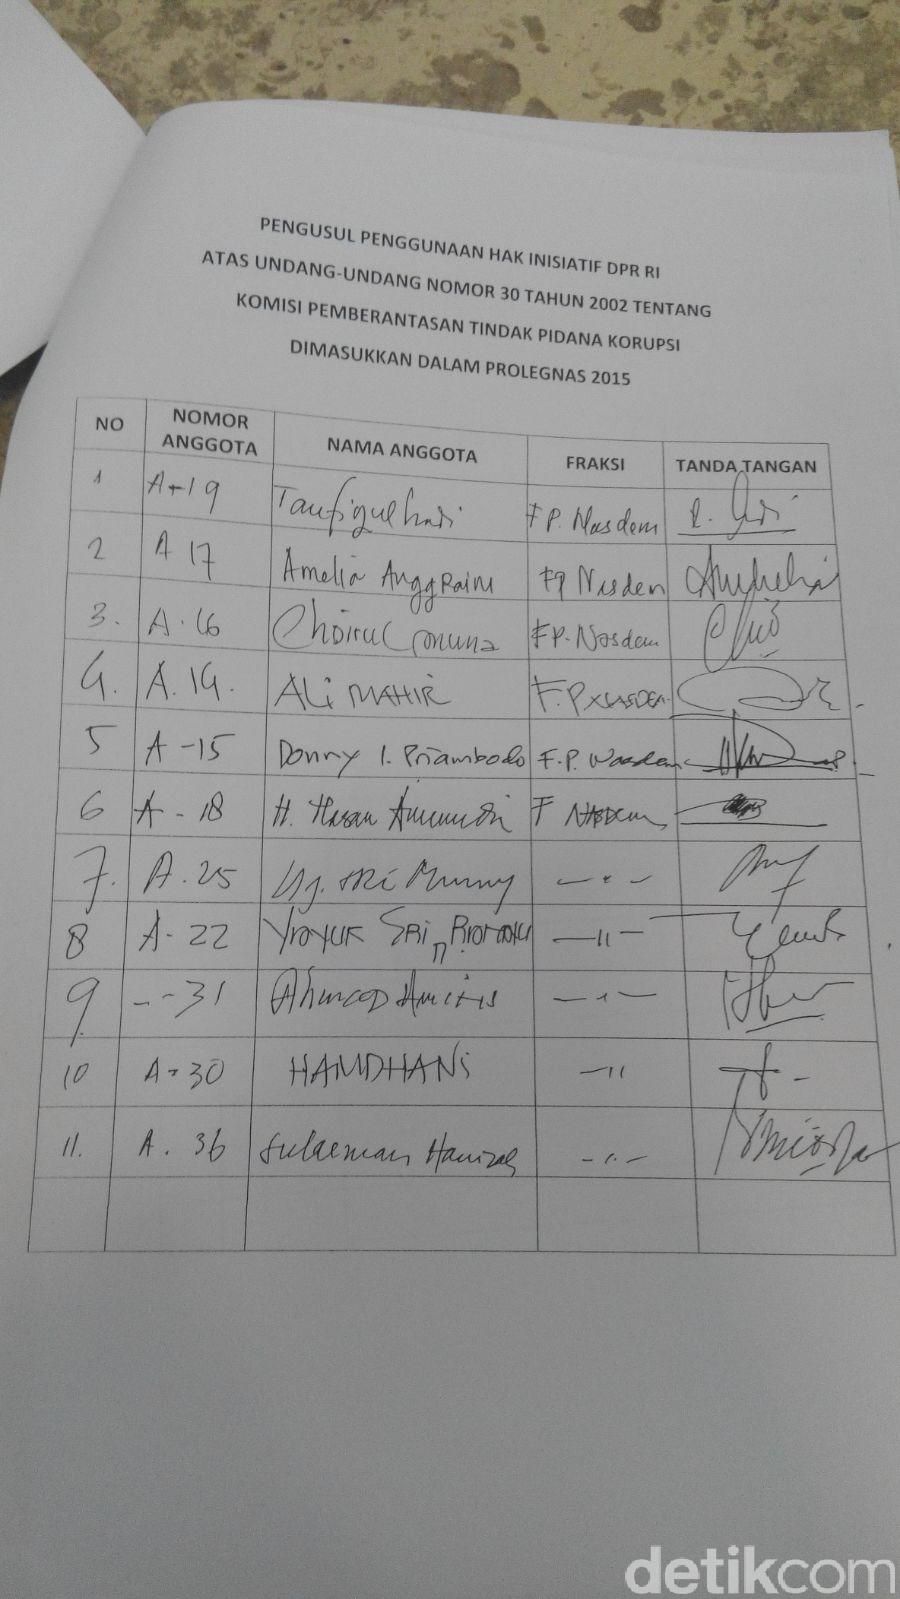 PENGUSUL PENGGUNAAN HAK INISIATIF DPR RI
ATAS UNDANG-UNDANG NOMOR 30 TAHUN 2002 TENTANG
KOMISI PEMBERANTASAN TINDAK PIDANA KORUPSI
DIMASUKKAN DALAM PROLEGNAS 2015
NO NOMOR ANGGOTA NAMA ANGGOTA FRAKSI TANDA TANGAN
1 A-19 Taufiqulhadi F P. Nasdem
2 A 17 Amelia Anggraini FP Nasdem
3. A-16 Choirul muna FP-Nasdem
4. A.14. ALI MAHIR F.P NASDEM
5 A-15 Donny I. Priambodo F.P. Nasdem
6 A-18 H. Hasan Aminuddin F NASDem
7. A.25 Sri - " -
8 A-22 YAYUK SRI - " -
9 --31 Ahmad - " -
10 A-30 HAMDHANI - "
11. A. 36 Sulaeman Hamzah - " -
detikcom